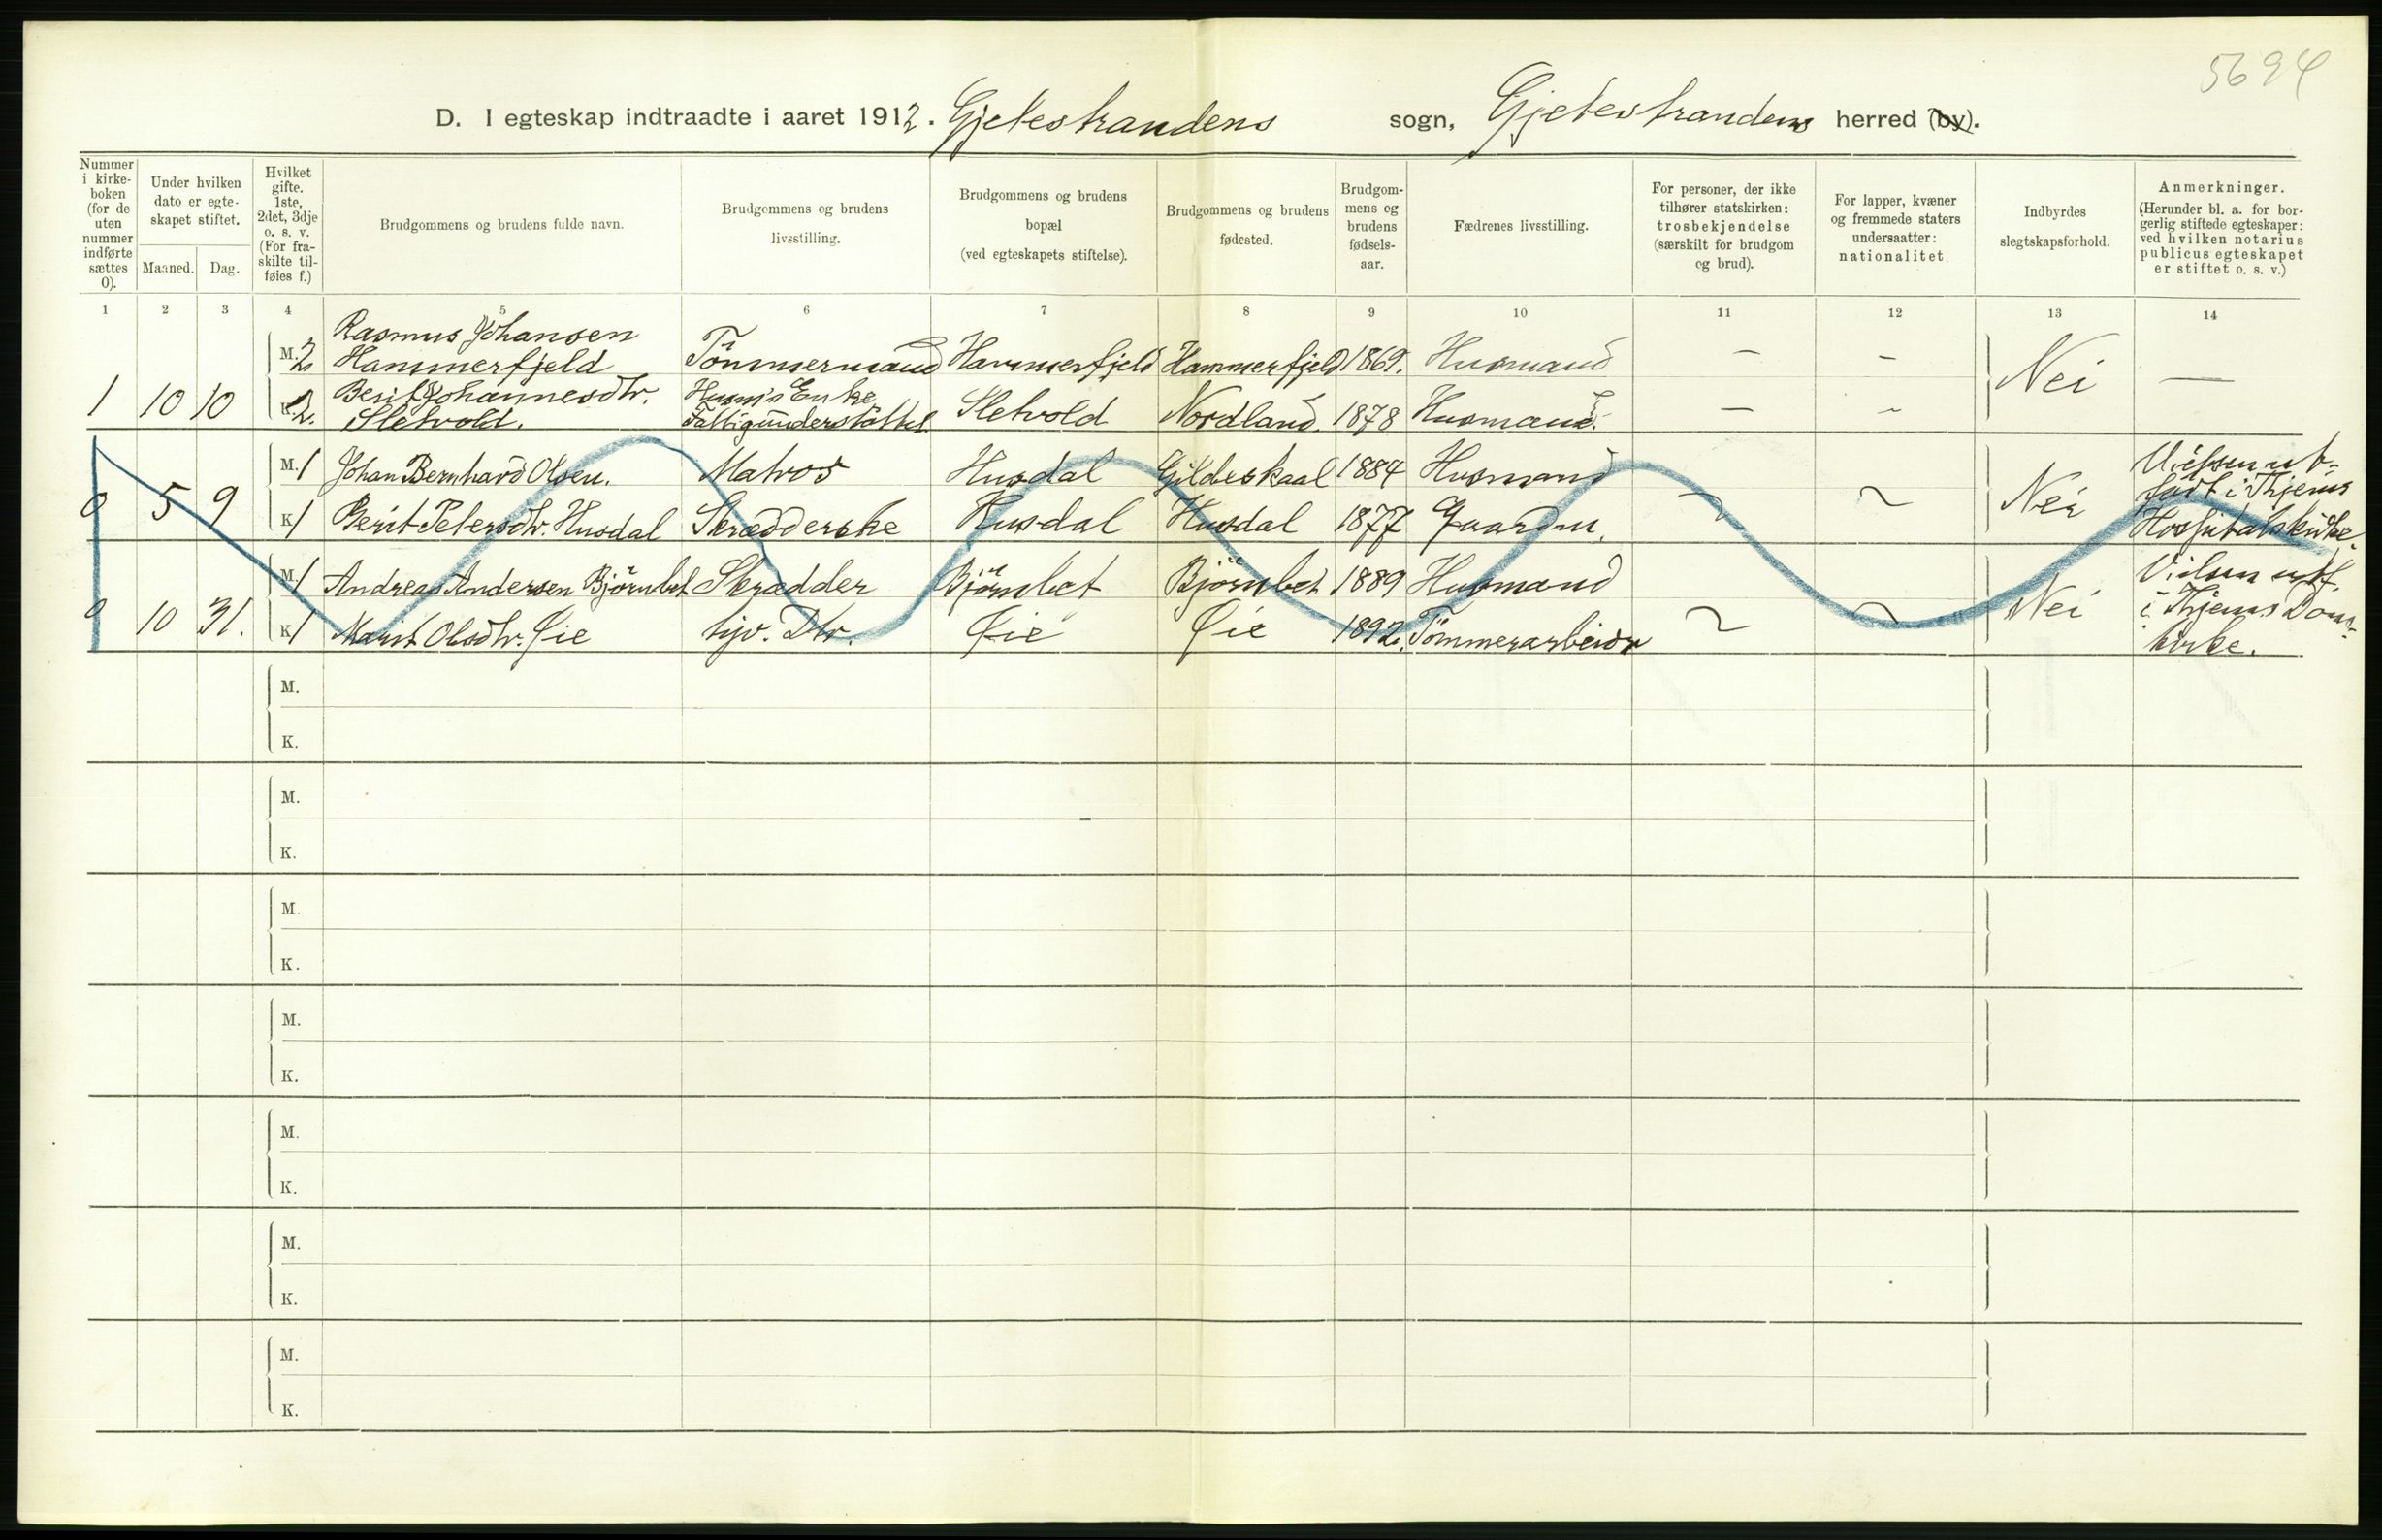 5694
D. I egteskap indtraadte i aaret 1912. Gjetestrandens sogn, Gjetestrandens herred (by).
Nummer i kirke-boken (for de uten nummer indførte sættes 0).
Under hvilken dato er egte-skapet stiftet.
Maaned. Dag.
Hvilket gifte. 1ste, 2det, 3dje o. s. v. (For fra-skilte til-føies f.)
Brudgommens og brudens fulde navn.
Brudgommens og brudens livsstilling.
Brudgommens og brudens bopæl (ved egteskapets stiftelse).
Brudgommens og brudens fødested.
Brudgom-mens og brudens fødsels-aar.
Fædrenes livsstilling.
For personer, der ikke tilhører statskirken: trosbekjendelse (særskilt for brudgom og brud).
For lapper, kvæner og fremmede staters undersaatter: nationalitet.
Indbyrdes slegtskapsforhold.
Anmerkninger. (Herunder bl. a. for bor-gerlig stiftede egteskaper: ved hvilken notarius publicus egteskapet er stiftet o. s. v.)
1 2 3 4 5 6 7 8 9 10 11 12 13 14
Rasmus Johansen
M. 2 Hammerfjeld Tömmermand Hammerfjeld Hammerfjeld 1869. Husmand – – Nei —
Berit Johannesdtr. Husm's Enke
1 10 10 K. 2. Sletvold. Fattigunderstöttet Sletvold Nordland. 1878 Husmand. – –
M. 1 Johan Bernhard Olsen. Matros Husdal Gildeskaal 1884 Husmand Vielsen ut-
0 5 9 ~ ~ Nei ført i Thjems
K 1 Berit Petersdtr. Husdal Skrædderske Husdal Husdal 1877 Gaardm. Hospitalskirke.
M 1 Andreas Andersen Björnbet Skrædder Björnbet Björnbet 1889 Husmand Vielsen utf.
0 10 31. ~ ~ Nei i Thjems Dom-
K 1 Marit Olsdtr. Øie hjv. Dtr. Øie Øie 1892. Tömmerarbeider kirke.
M.
K.
M.
K.
M.
K.
M.
K.
M.
K.
M.
K.
M.
K.